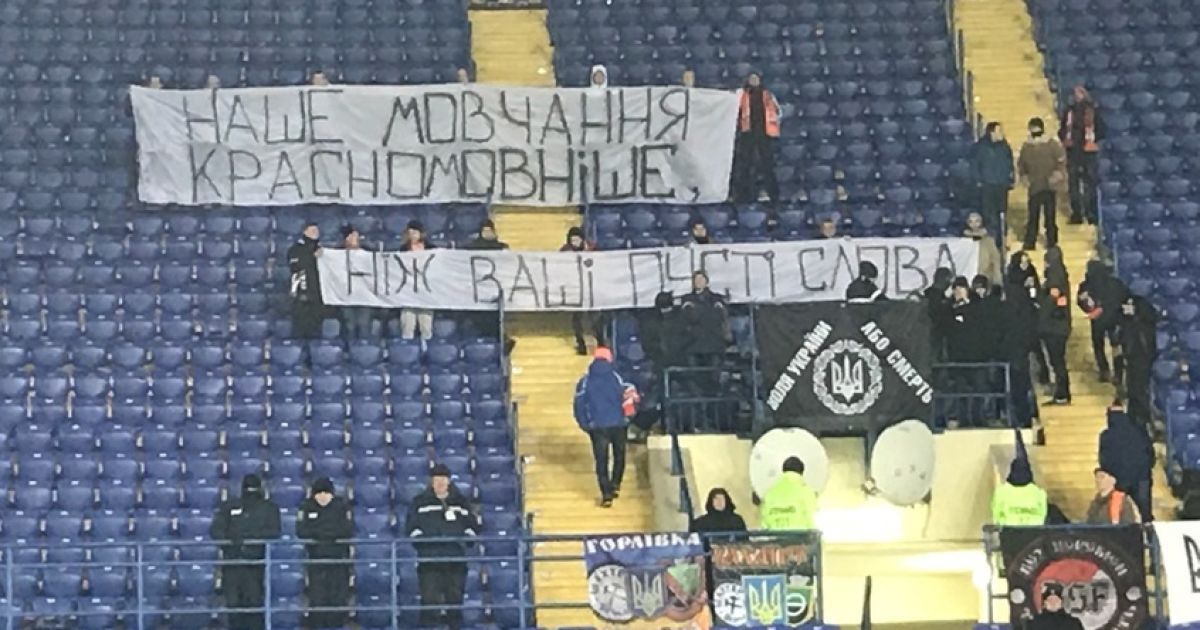 НАШЕ МОВЧАННЯ
КРАСНОМОВНіШЕ,
НіЖ ВАШі ПУСТі СЛОВА
ВОЛЯ УКРАЇНИ
АБО СМЕРТЬ
ГОРЛІВКА